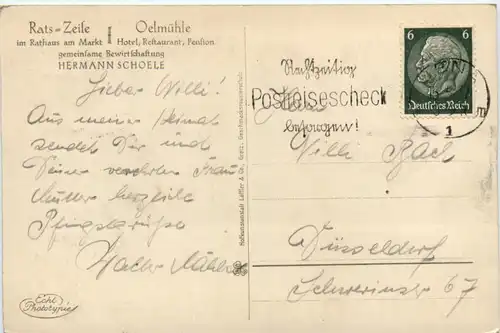 Rats=Zeile Oelmühle
im Rathaus am Markt Hotel, Restaurant, Pension
gemeinsame Bewirtschaftung
HERMANN SCHOELE
Lieber Willi!
Aus meiner Heimat
sendet Dir und
Deiner verehrten Frau
Mutter herzliche
Pfingstgrüße
Walter
Echt
Photographie
Rechtzeitig
Postreisescheck
besorgen!
6 6
Deutsches Reich
1
Herrn
Willi
Düsseldorf
Schwerinstr 67